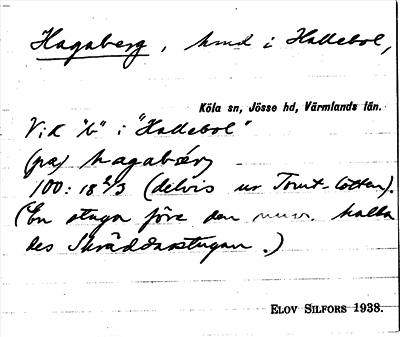 Hagaberg, hmd i Hallebol,
Köla sn, Jösse hd, Värmlands län.
Vid "b" i "Hallebol"
(pa) hagabärj
100: 18 2/3 (delvis ur Tomt-lotten).
(En stuga före den nuv. kalla
des Skräddarstugan.)
ELOV SILFORS 1938.